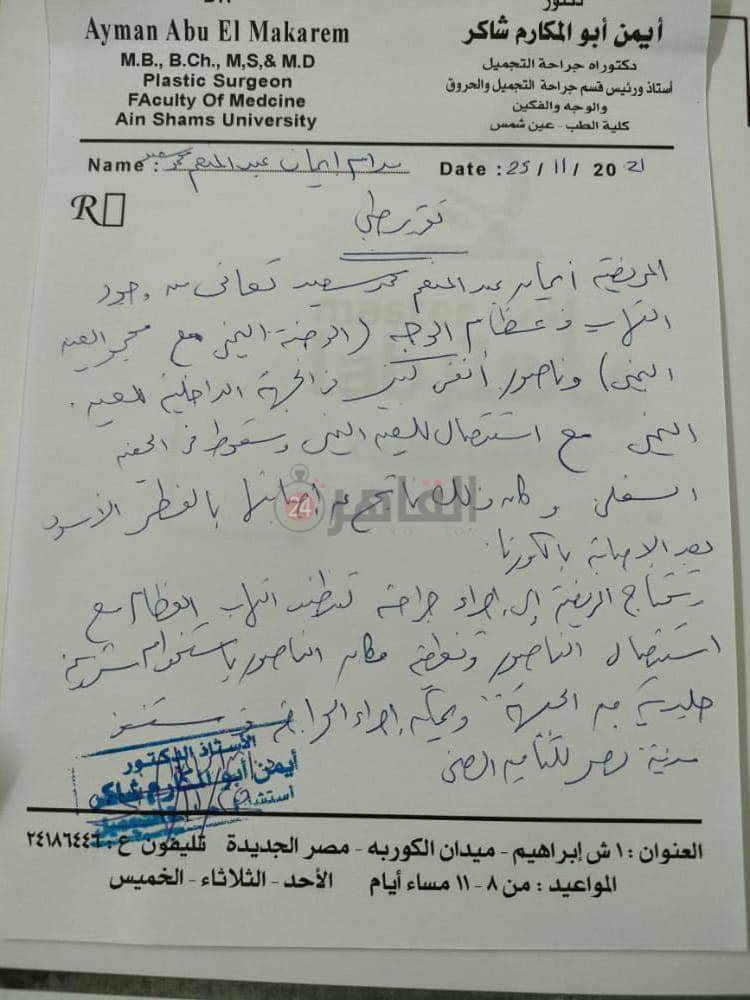 DR
دكتور
Ayman Abu El Makarem
أيمن أبو المكارم شاكر
M.B., B.Ch., M,S,& M.D
دكتوراه جراحة التجميل
Plastic Surgeon
أستاذ ورئيس قسم جراحة التجميل والحروق
FAculty Of Medcine
والوجه والفكين
Ain Shams University
كلية الطب - عين شمس
Name : مدام إيمان عبد المنعم محمد سعيد Date : 25 / 11 / 20 21
R
تقرير طبي
المريضة إيمان عبد المنعم محمد سعيد تعانى من وجود
التهاب فى عظام الوجه (الوجنة اليمنى مع محجر العين
اليمنى) وناصور أنفى فى الجهة الداخلية للعين
اليمنى مع استئصال للعين اليمنى وسقوط فى الجفن
السفلى وكان ذلك ناتج عن اصابتها بالفطر الأسود
بعد الاصابة بالكورونا.
تحتاج المريضة إلى إجراء جراحة تنظيف التهاب العظام مع
استئصال الناصور وتغطية مكان الناصور باستخدام شريحة
جلدية من الجبهة. ويمكن إجراء الجراحة فى مستشفى
مدينة نصر للتأمين الصحى
القاهرة 24
CAIRO24.COM
الأستاذ الدكتور
أيمن أبو المكارم شاكر
العنوان : ١ ش إبراهيم - ميدان الكوربه - مصر الجديدة تليفون ع : ٢٤١٨٦٤٤٦
المواعيد : من ٨ - ١١ مساء أيام الأحد - الثلاثاء - الخميس